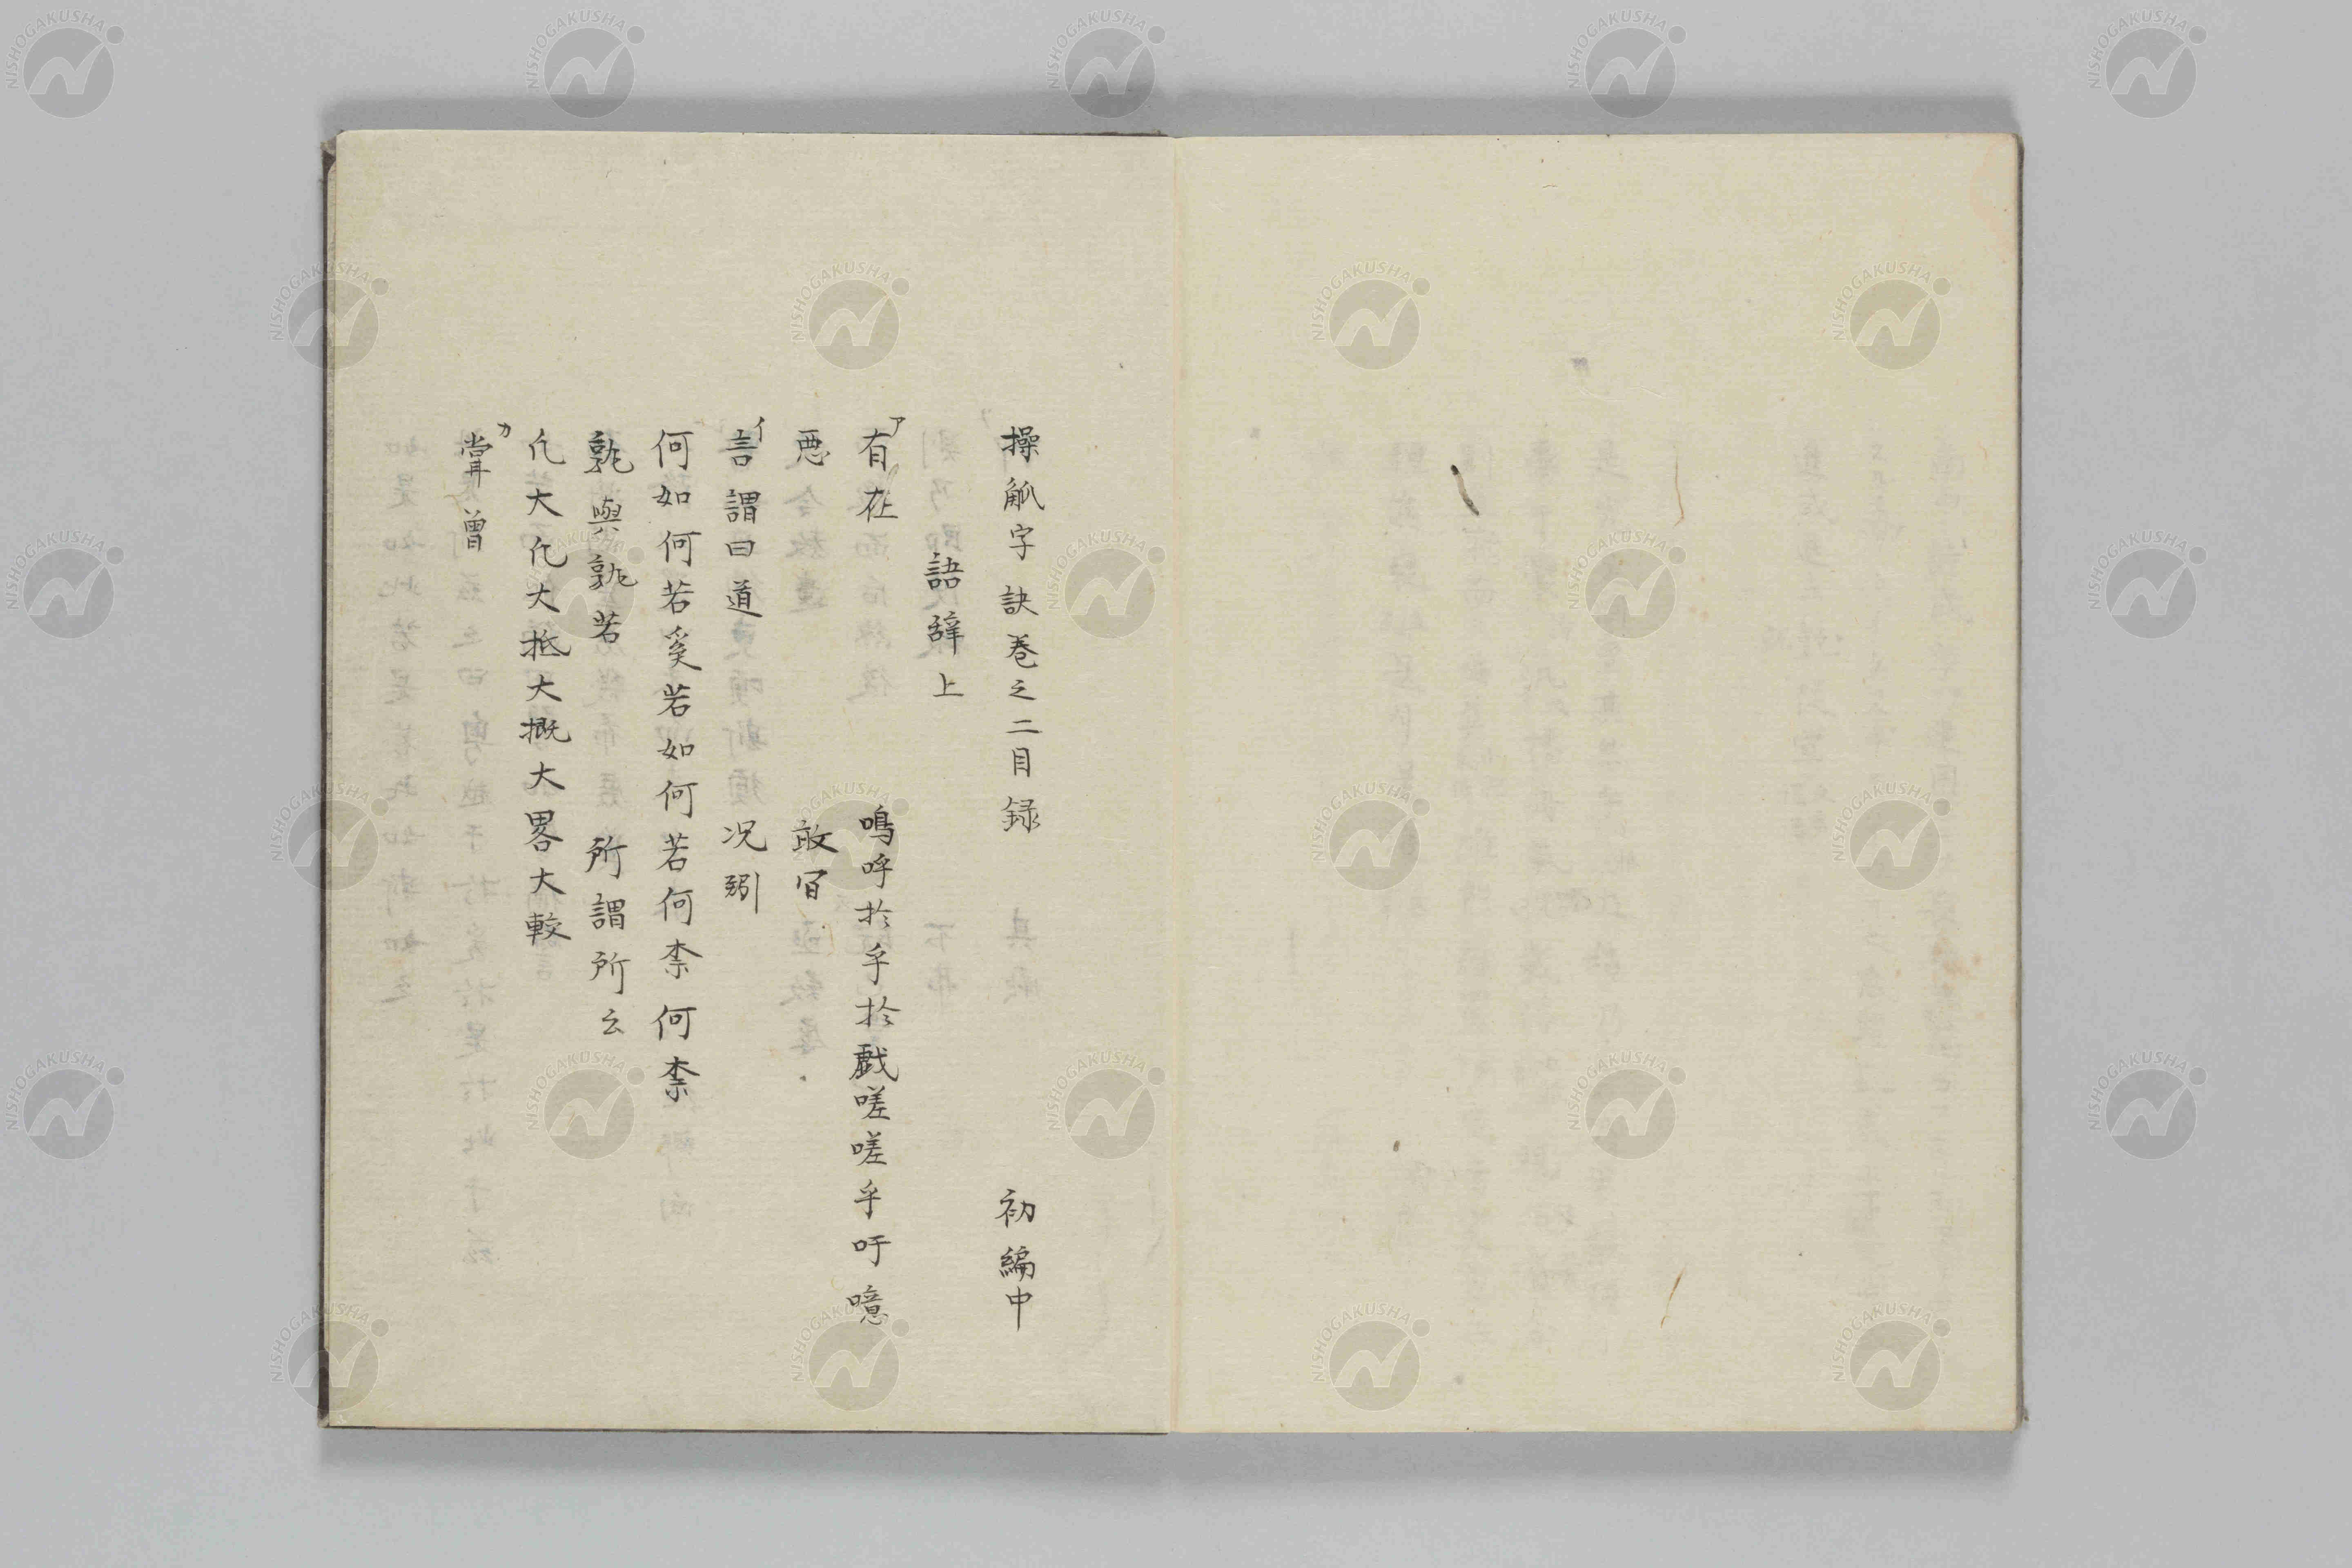 操觚字訣巻之二目録 初編中
語辞上
ア 有在 嗚呼於乎於戯嗟嗟乎吁噫
悪 敢肯
イ 言謂曰道 况矧
何如何若奚若如何若何柰何柰
孰與孰若 所謂所云
凢大凢大抵大概大畧大較
カ 甞曽
NISHOGAKUSHA